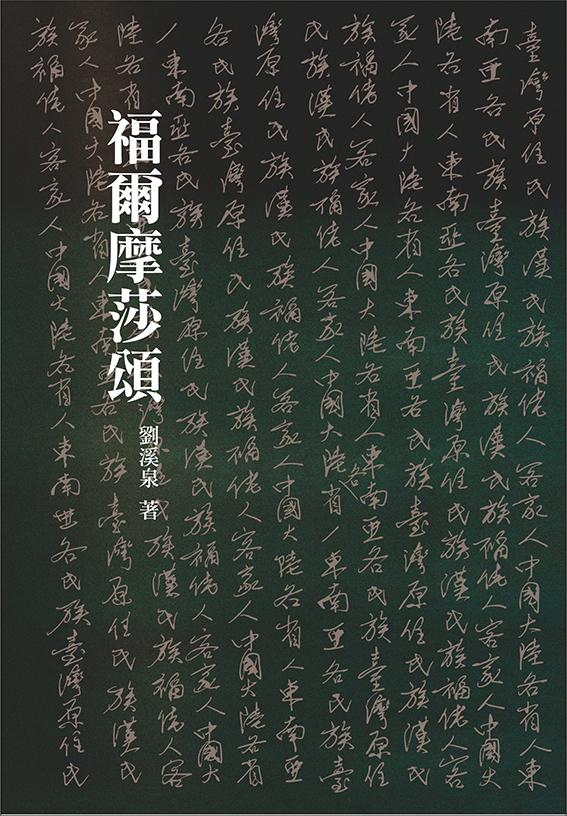 臺灣原住民族漢民族福佬人客家人中國大陸各省人東
南亞各民族臺灣原住民族漢民族福佬人客家人中國大
陸各省人東南亞各民族臺灣原住民族漢民族福佬人客
家人中國大陸各省人東南亞各民族臺灣原住民族漢民
族福佬人客家人中國大陸各省人東南亞各民族臺灣原住
民族漢民族福佬人客家人中國大陸各省人東南亞各民族臺
灣原住民族漢民族福佬人客家人中國大陸各省人東南亞
各民族臺灣原住民族漢民族福佬人客家人中國大陸各省
人東南亞各民族臺灣原住民族漢民族福佬人客家人中國大
福爾摩莎頌
劉溪泉 著
陸各省人東南亞各民族臺灣原住民族漢民族福佬人客
家人中國大陸各省人東南亞各民族臺灣原住民族漢民
族福佬人客家人中國大陸各省人東南亞各民族臺灣原住民